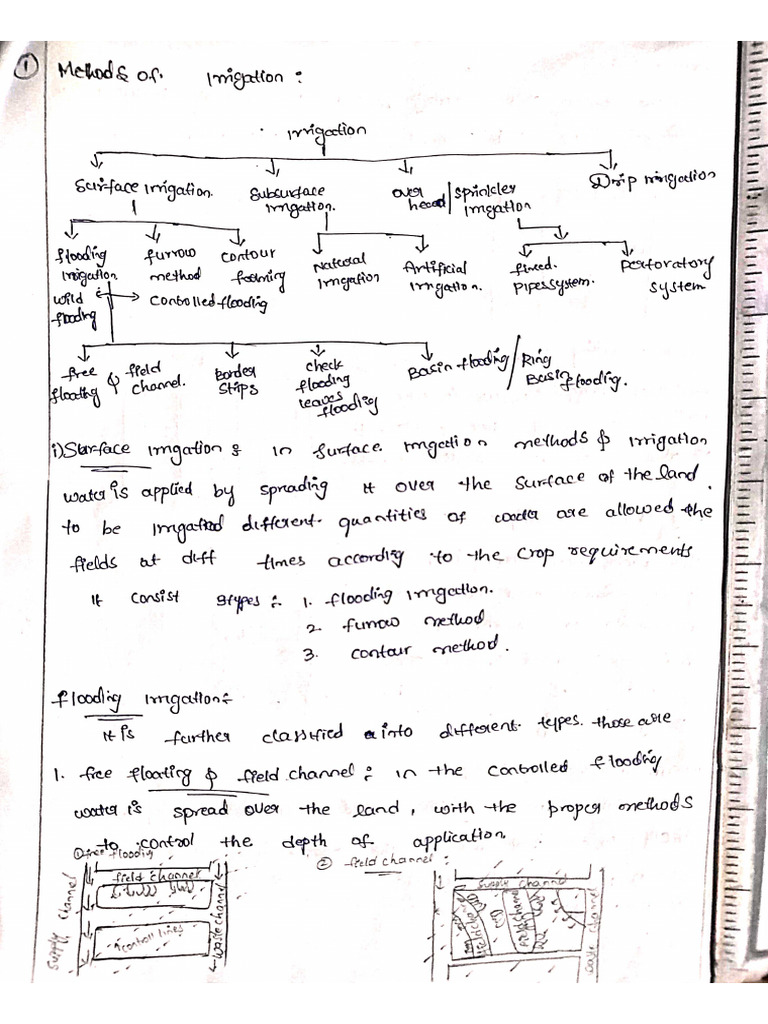 ① Methods of. Irrigation :
irrigation
Surface irrigation. Subsurface irrigation. over head/sprinkler irrigation Drip irrigation
flooding irrigation furrow method contour farming Natural irrigation Artificial irrigation. fixed. pipes system. perforatory system
wild flooding controlled flooding
free floating & field channel. Border strips check flooding leaves flooding Basin flooding/Ring Basin flooding.
i) Surface irrigation : in surface irrigation methods irrigation
water is applied by spreading it over the surface of the land.
to be irrigated different quantities of water are allowed the
fields at diff times according to the crop requirements
it consist 3types :- 1. flooding irrigation.
2. furrow method.
3. contour method.
flooding irrigation:-
it is further classified into different types. those are.
1. free floating & field channel : in the controlled flooding
water is spread over the land, with the proper methods
to control the depth of application.
① free flooding ② field channel :
field channel supply channel
supply channel waste channel field channel field channel waste channel
control lines